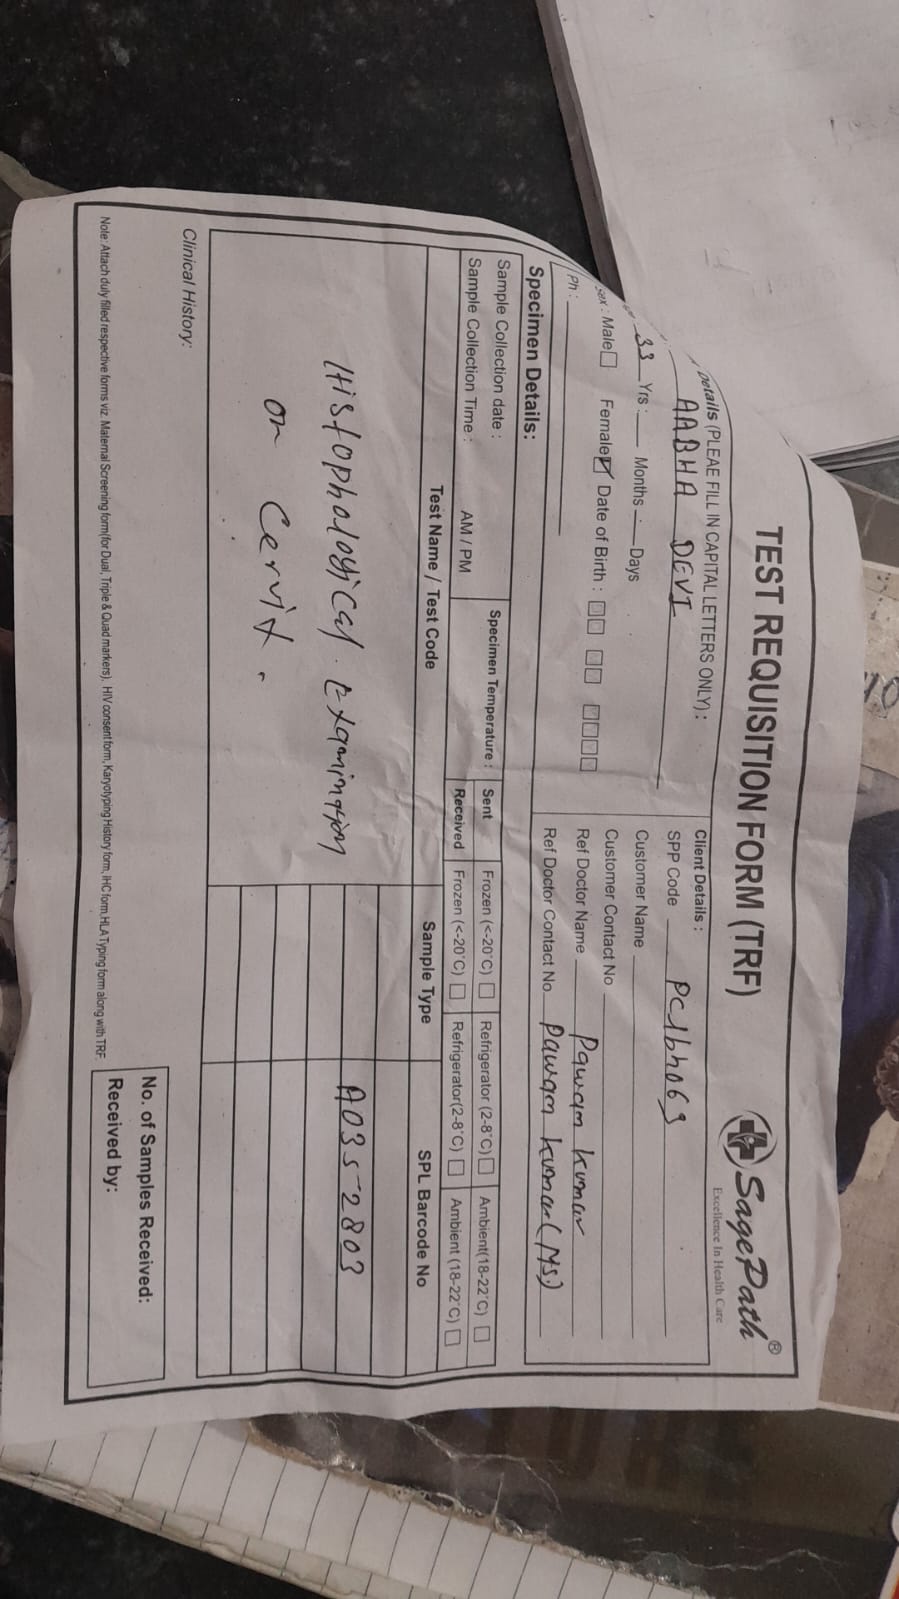 TEST REQUISITION FORM (TRF)
SagePath®
Excellence In Health Care
Details (PLEAE FILL IN CAPITAL LETTERS ONLY) :
AABHA DEVI
33 Yrs : Months Days
Sex : Male Female Date of Birth :
Ph :
Client Details :
SPP Code
Customer Name
Customer Contact No
Ref Doctor Name Pawan kumar
Ref Doctor Contact No. Pawan kumar (MS.)
Specimen Details:
Sample Collection date :
Sample Collection Time : AM / PM
Specimen Temperature :
Sent Frozen (<-20°C) Refrigerator (2-8°C) Ambient(18-22°C)
Received Frozen (<-20°C) Refrigerator(2-8°C) Ambient (18-22°C)
Test Name / Test Code Sample Type SPL Barcode No
Histophological Examination A0352803
on Cervix.
Clinical History:
No. of Samples Received:
Received by:
Note: Attach duly filled respective forms viz. Maternal Screening form(for Dual, Triple & Quad markers), HIV consent form, Karyotyping History form, IHC form, HLA Typing form along with TRF.